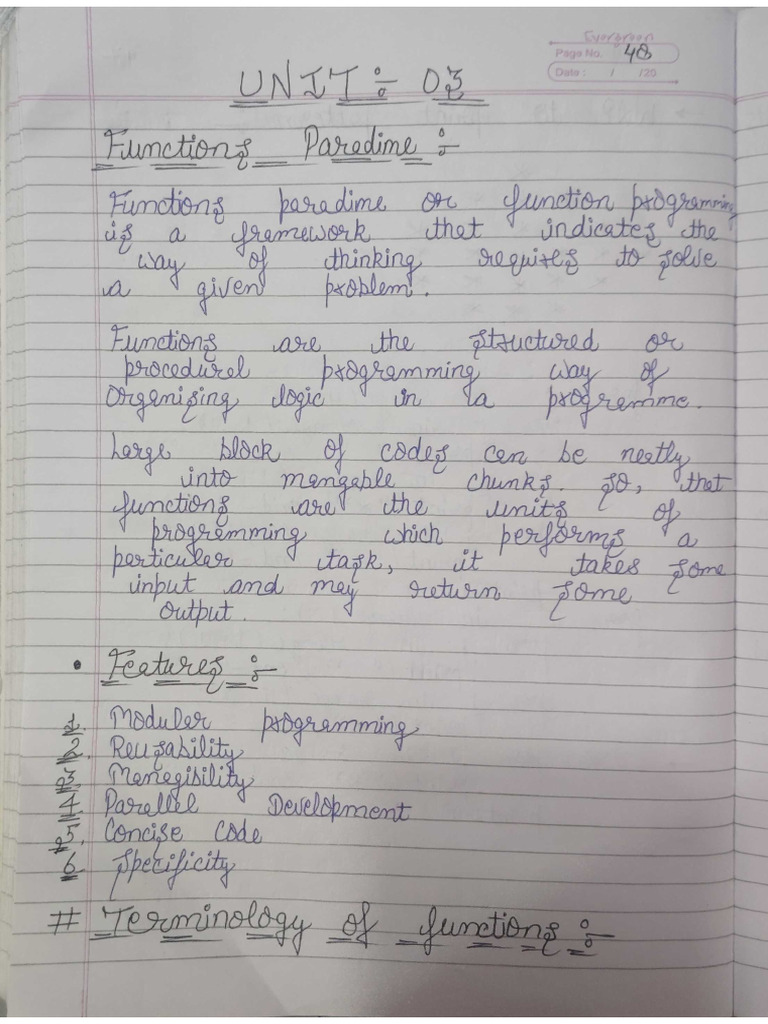 Evergreen
Page No. 48
Date : / /20
UNIT :- 03
Functions Paredime :-
Functions paredime or function programming
is a framework that indicates the
way of thinking requires to solve
a given problem.
Functions are the structured or
procedurel programming way of
Organising logic in a programme.
Large block of codes can be neatly
into mangable chunks. So, that
functions are the units of
programming which performs a
particular task, it takes some
input and may return some
output.
• Features :-
1. Moduler programming
2. Reusability
3. Manegibility
4. Parallel Development
5. Concise Code
6. Specificity
# Terminology of functions :-